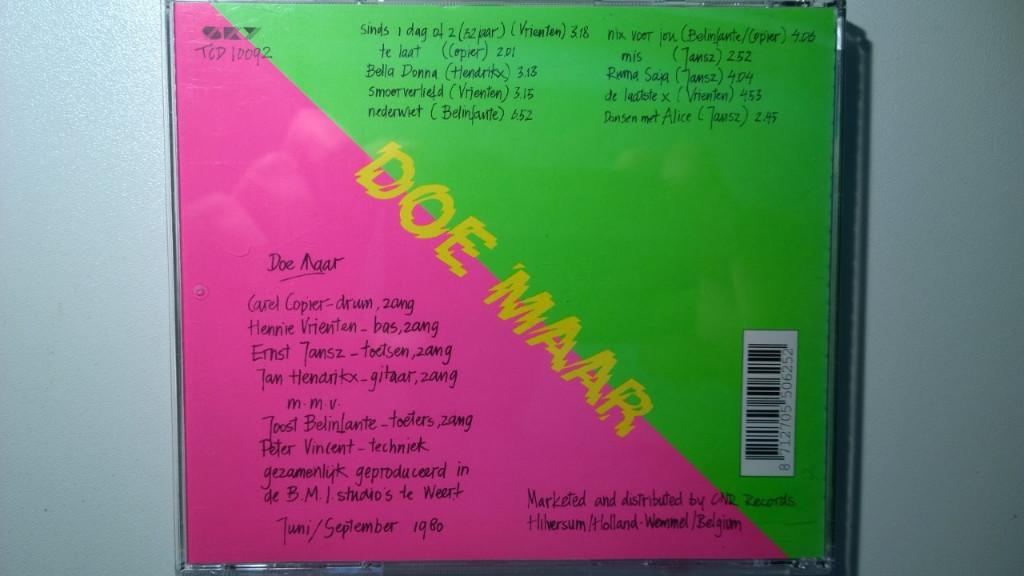 SKY
TCD 10092
sinds 1 dag of 2 (32 jaar) (Vrienten) 3.18
te laat (Copier) 2.01
Bella Donna (Hendrikx) 3.18
smoorverliefd (Vrienten) 3.15
nederwiet (Belinfante) 6.52
nix voor jou (Belinfante/Copier) 4.06
mis (Jansz) 2.52
Ruma Saja (Jansz) 4.04
de laatste x (Vrienten) 4.53
Dansen met Alice (Jansz) 2.45
DOE MAAR
Doe Maar
Carel Copier - drum, zang
Hennie Vrienten - bas, zang
Ernst Jansz - toetsen, zang
Jan Hendrikx - gitaar, zang
m.m.v.
Joost Belinfante - toeters, zang
Peter Vincent - techniek
gezamenlijk geproduceerd in
de B.M.I. studio's te Weert
Juni/September 1980
8 712705 506252
Marketed and distributed by CNR Records
Hilversum/Holland-Wemmel/Belgium